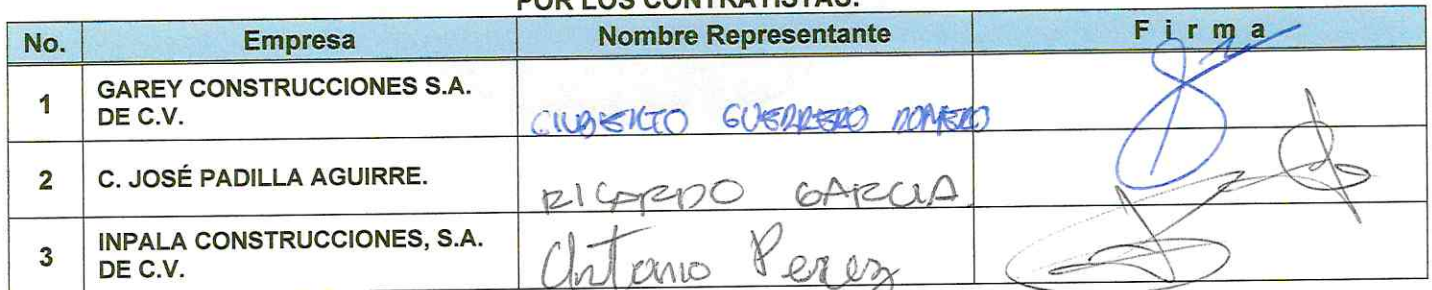 POR LOS CONTRATISTAS:
No. Empresa Nombre Representante F i r m a
1 GAREY CONSTRUCCIONES S.A. DE C.V. GILBERTO GUERRERO ROMERO
2 C. JOSÉ PADILLA AGUIRRE. RICARDO GARCIA
3 INPALA CONSTRUCCIONES, S.A. DE C.V. Antonio Perez